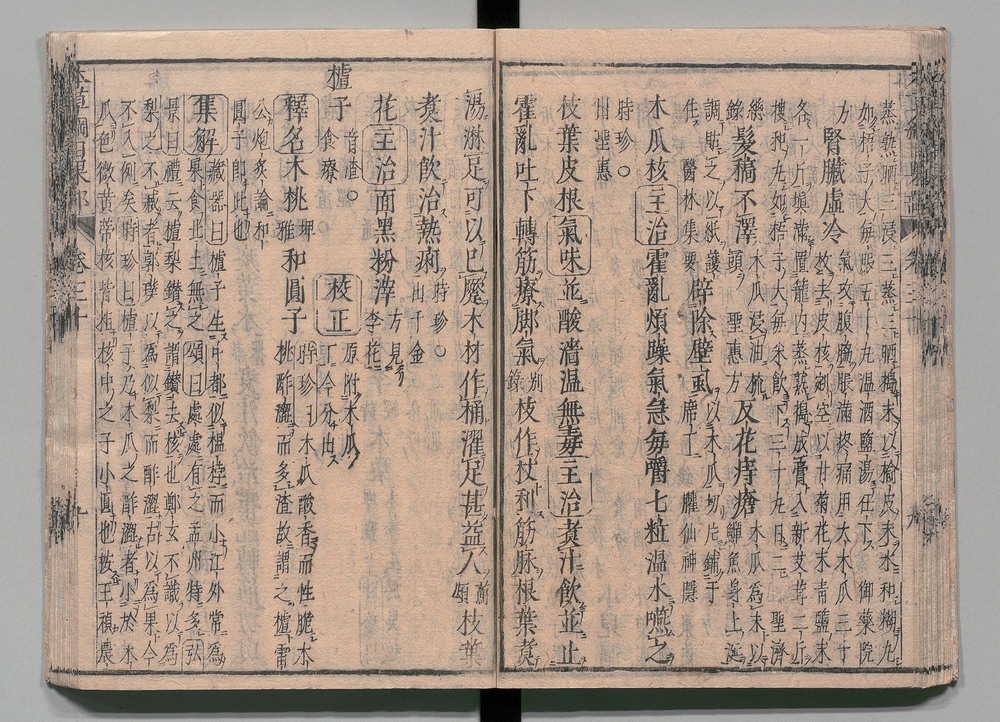 蒸熟晒三浸三蒸三晒擣末以榆皮末水和糊丸
如梧子大每服五十丸溫酒鹽湯任下 御藥院
方 腎臟虛冷 氣攻腹脇脹滿疼痛用大木瓜三十
枚去皮核剜空以甘菊花末青鹽末
各一斤填滿置籠内蒸熟擣成膏入新艾茸二斤
搜和丸如梧子大每米飲下三十丸日二 聖濟
總錄 髮槁不澤 木瓜浸油梳頭 聖惠方 反花痔瘡 木瓜爲末以
鱓魚身上涎
調貼之以紙護住 醫林集要 辟除壁虱 以木瓜切片鋪于
席下 臞仙神隱
木瓜核 主治 霍亂煩躁氣急每嚼七粒溫水嚥之
時珍○
出聖惠
枝葉皮根 氣味 並酸濇溫無毒 主治 煮汁飲並止
霍亂吐下轉筋療脚氣 別錄 枝作杖利筋脉根葉煮
湯淋足可以已蹷木材作桶濯足甚益人 蘇頌 枝葉
煮汁飲治熱痢 時珍○
出千金
花 主治 面黑粉滓 方見
李花
樝子 音渣○
食療 校正 原附木瓜
下今分出
釋名 木桃 埤雅 和圓子 時珍曰木瓜酸香而性脆木
桃酢濇而多渣故謂之樝雷
公炮炙論和
圓子即此也
集解 藏器曰樝子生中都似榲桲而小江外常爲
果食北土無之 頌曰處處有之孟州特多弘
景曰禮云樝梨鑽之謂鑽去核也鄭玄不識以爲
梨之不臧者郭璞以爲似梨而酢濇古以爲果今
不入例矣 時珍曰樝子乃木瓜之酢濇者小於木
瓜色微黃蒂核皆粗核中之子小圓也故王禎農